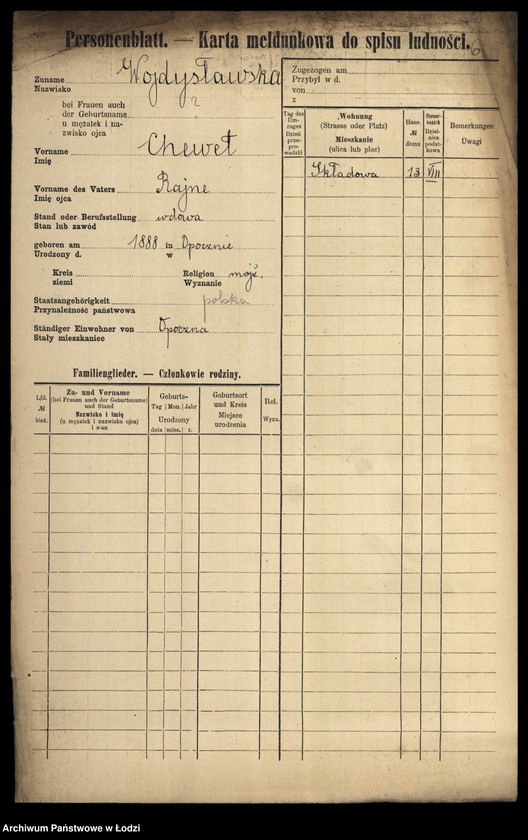 Personenblatt. — Karta meldunkowa do spisu ludności.
6
Zuname Wojdysławska
Nazwisko
bei Frauen auch
der Geburtsname ?
u mężatek i na-
zwisko ojca
Vorname Chewet
Imię
Vorname des Vaters Rajne
Imię ojca
Stand oder Berufsstellung wdowa
Stan lub zawód
geboren am 1888 in Opocznie
Urodzony d. w
Kreis Religion mojż.
ziemi Wyznanie
Staatsangehörigkeit polska
Przynależność państwowa
Ständiger Einwohner von Opoczna
Stały mieszkaniec
Zugezogen am
Przybył w d.
von
z
Tag des Um-zuges Dzień prze-pro-wadzki
Wohnung
(Strasse oder Platz)
Mieszkanie
(ulica lub plac)
Haus-
№
domu
Steuer-bezirk
Dziel-nica podat-kowa
Bemerkungen
Uwagi
Składowa 13 VIII
Familienglieder. — Członkowie rodziny.
Lfd.
№
bież.
Zu- und Vorname
(bei Frauen auch der Geburtsname)
und Stand
Nazwisko i imię
(u mężatek i nazwisko ojca)
i stan
Geburts-
Tag Mon. Jahr
Urodzony
dnia mies. r.
Geburtsort
und Kreis
Miejsce
urodzenia
Rel.
Wyzn.
Archiwum Państwowe w Łodzi